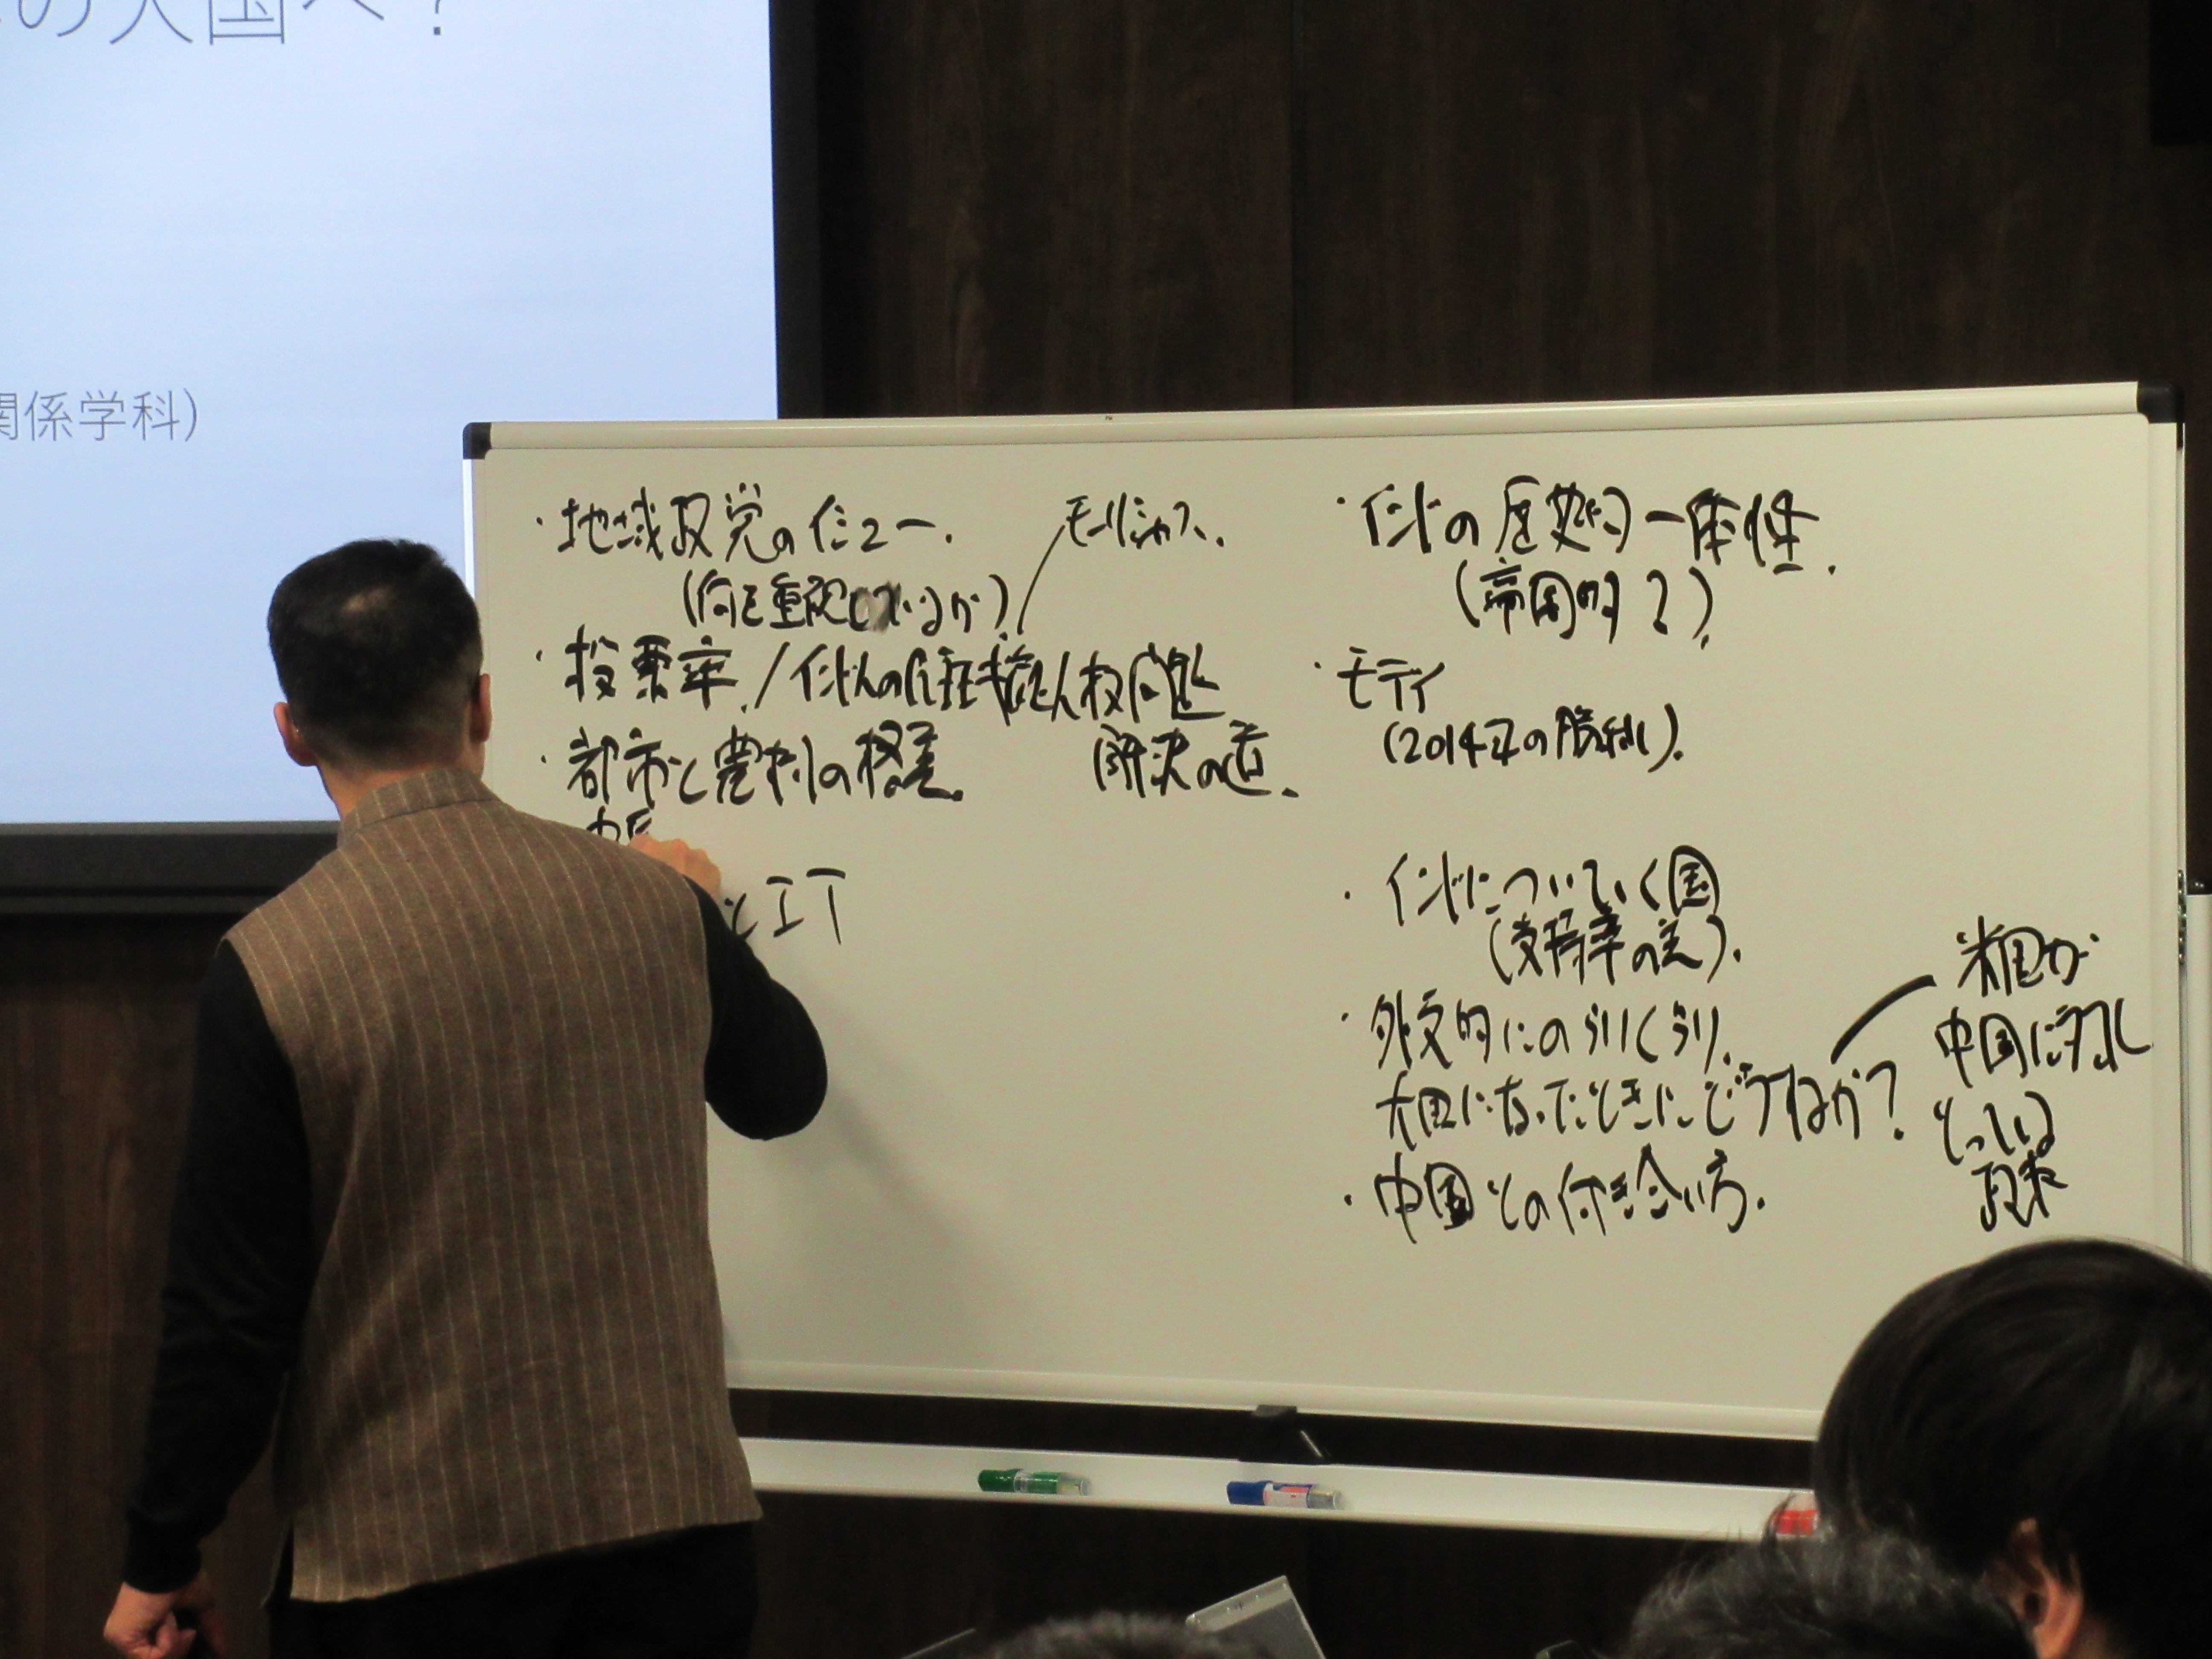 の大国へ?
関係学科)
・地域政党のインュー.
モーリシャス.
(何を重視しているか)
・投票率. / インド人の 人权问题
解決の道.
・都市と農村の格差.
とIT
・インドの歴史的一体性.
(帝国的?)
・モディ
(2014年の勝利).
・インドについていく国
(支持率の差).
・外交的にのらりくらり.
大国になったときにどうするか?
米国が
中国に対し
とっている
政策
・中国との付き合い方.